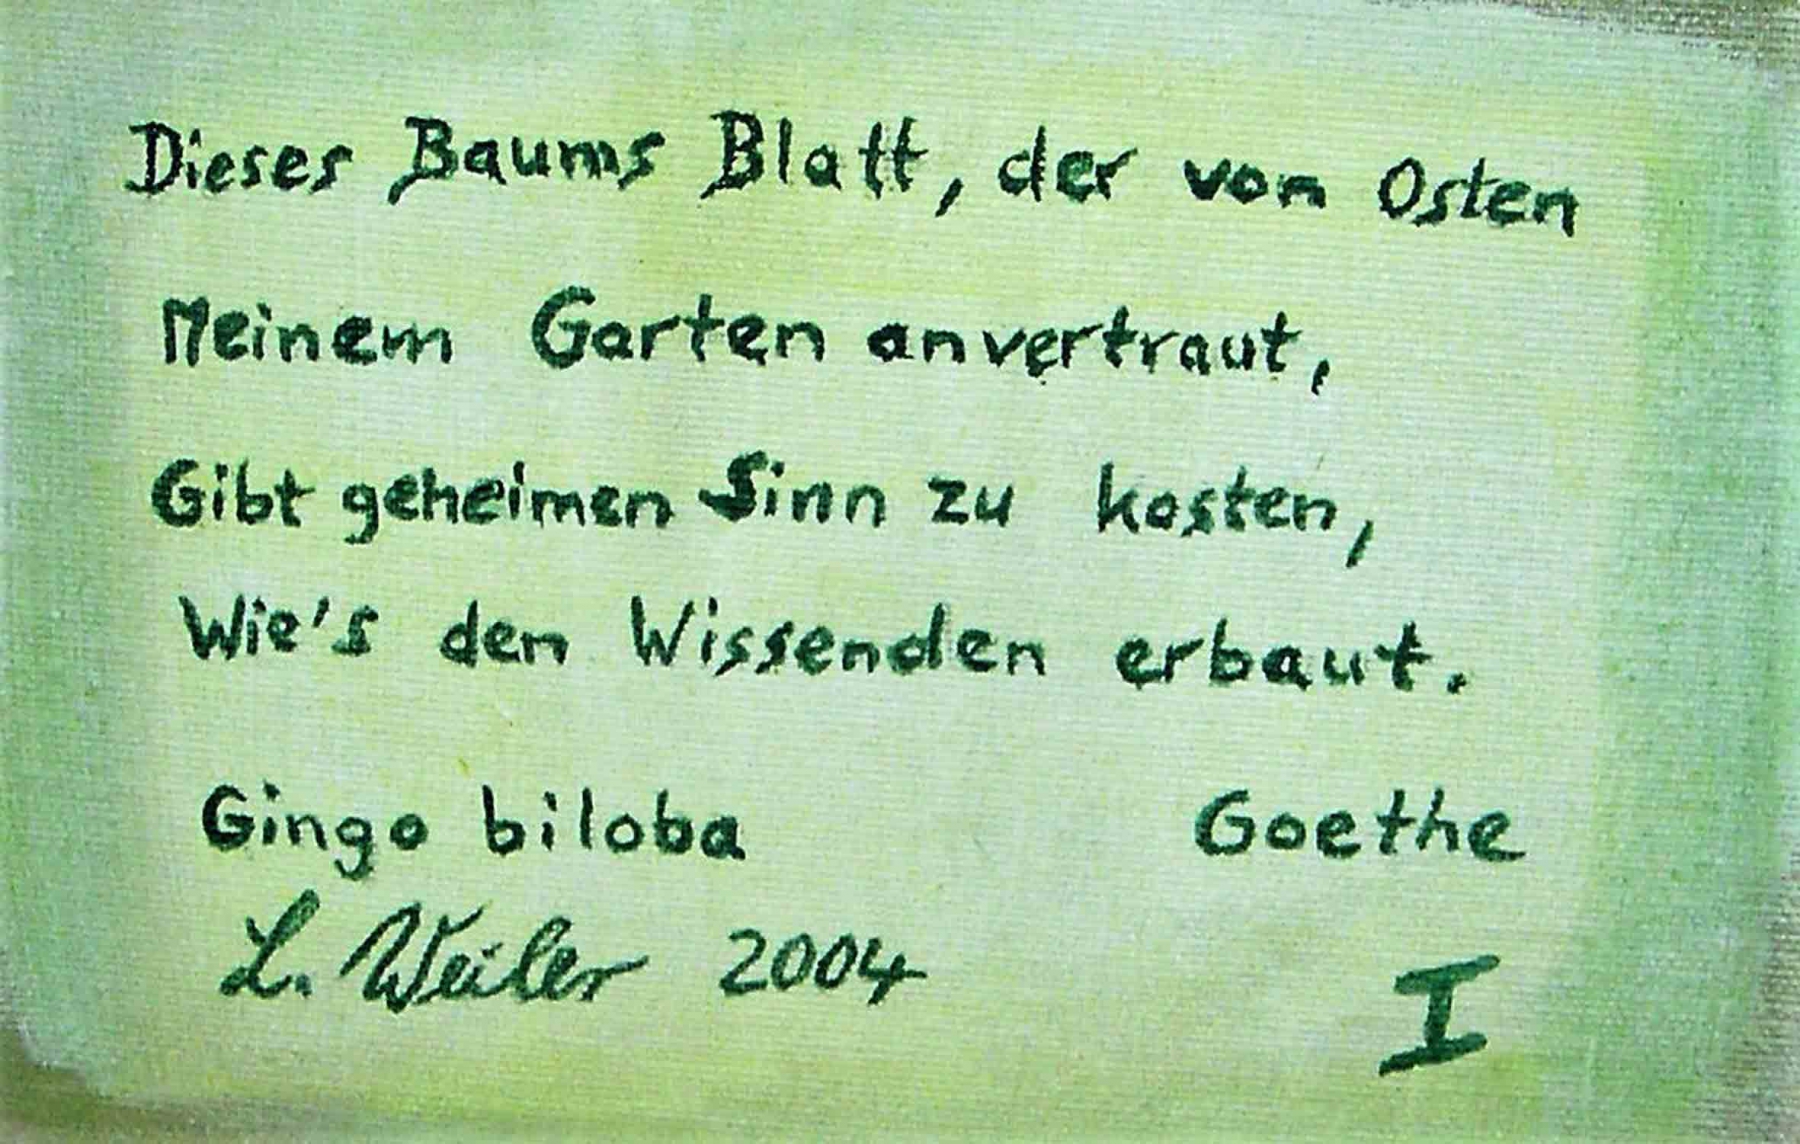 Dieses Baums Blatt, der von Osten
Meinem Garten anvertraut,
Gibt geheimen Sinn zu kosten,
Wie's den Wissenden erbaut.
Gingo biloba Goethe
L. Weiler 2004 I